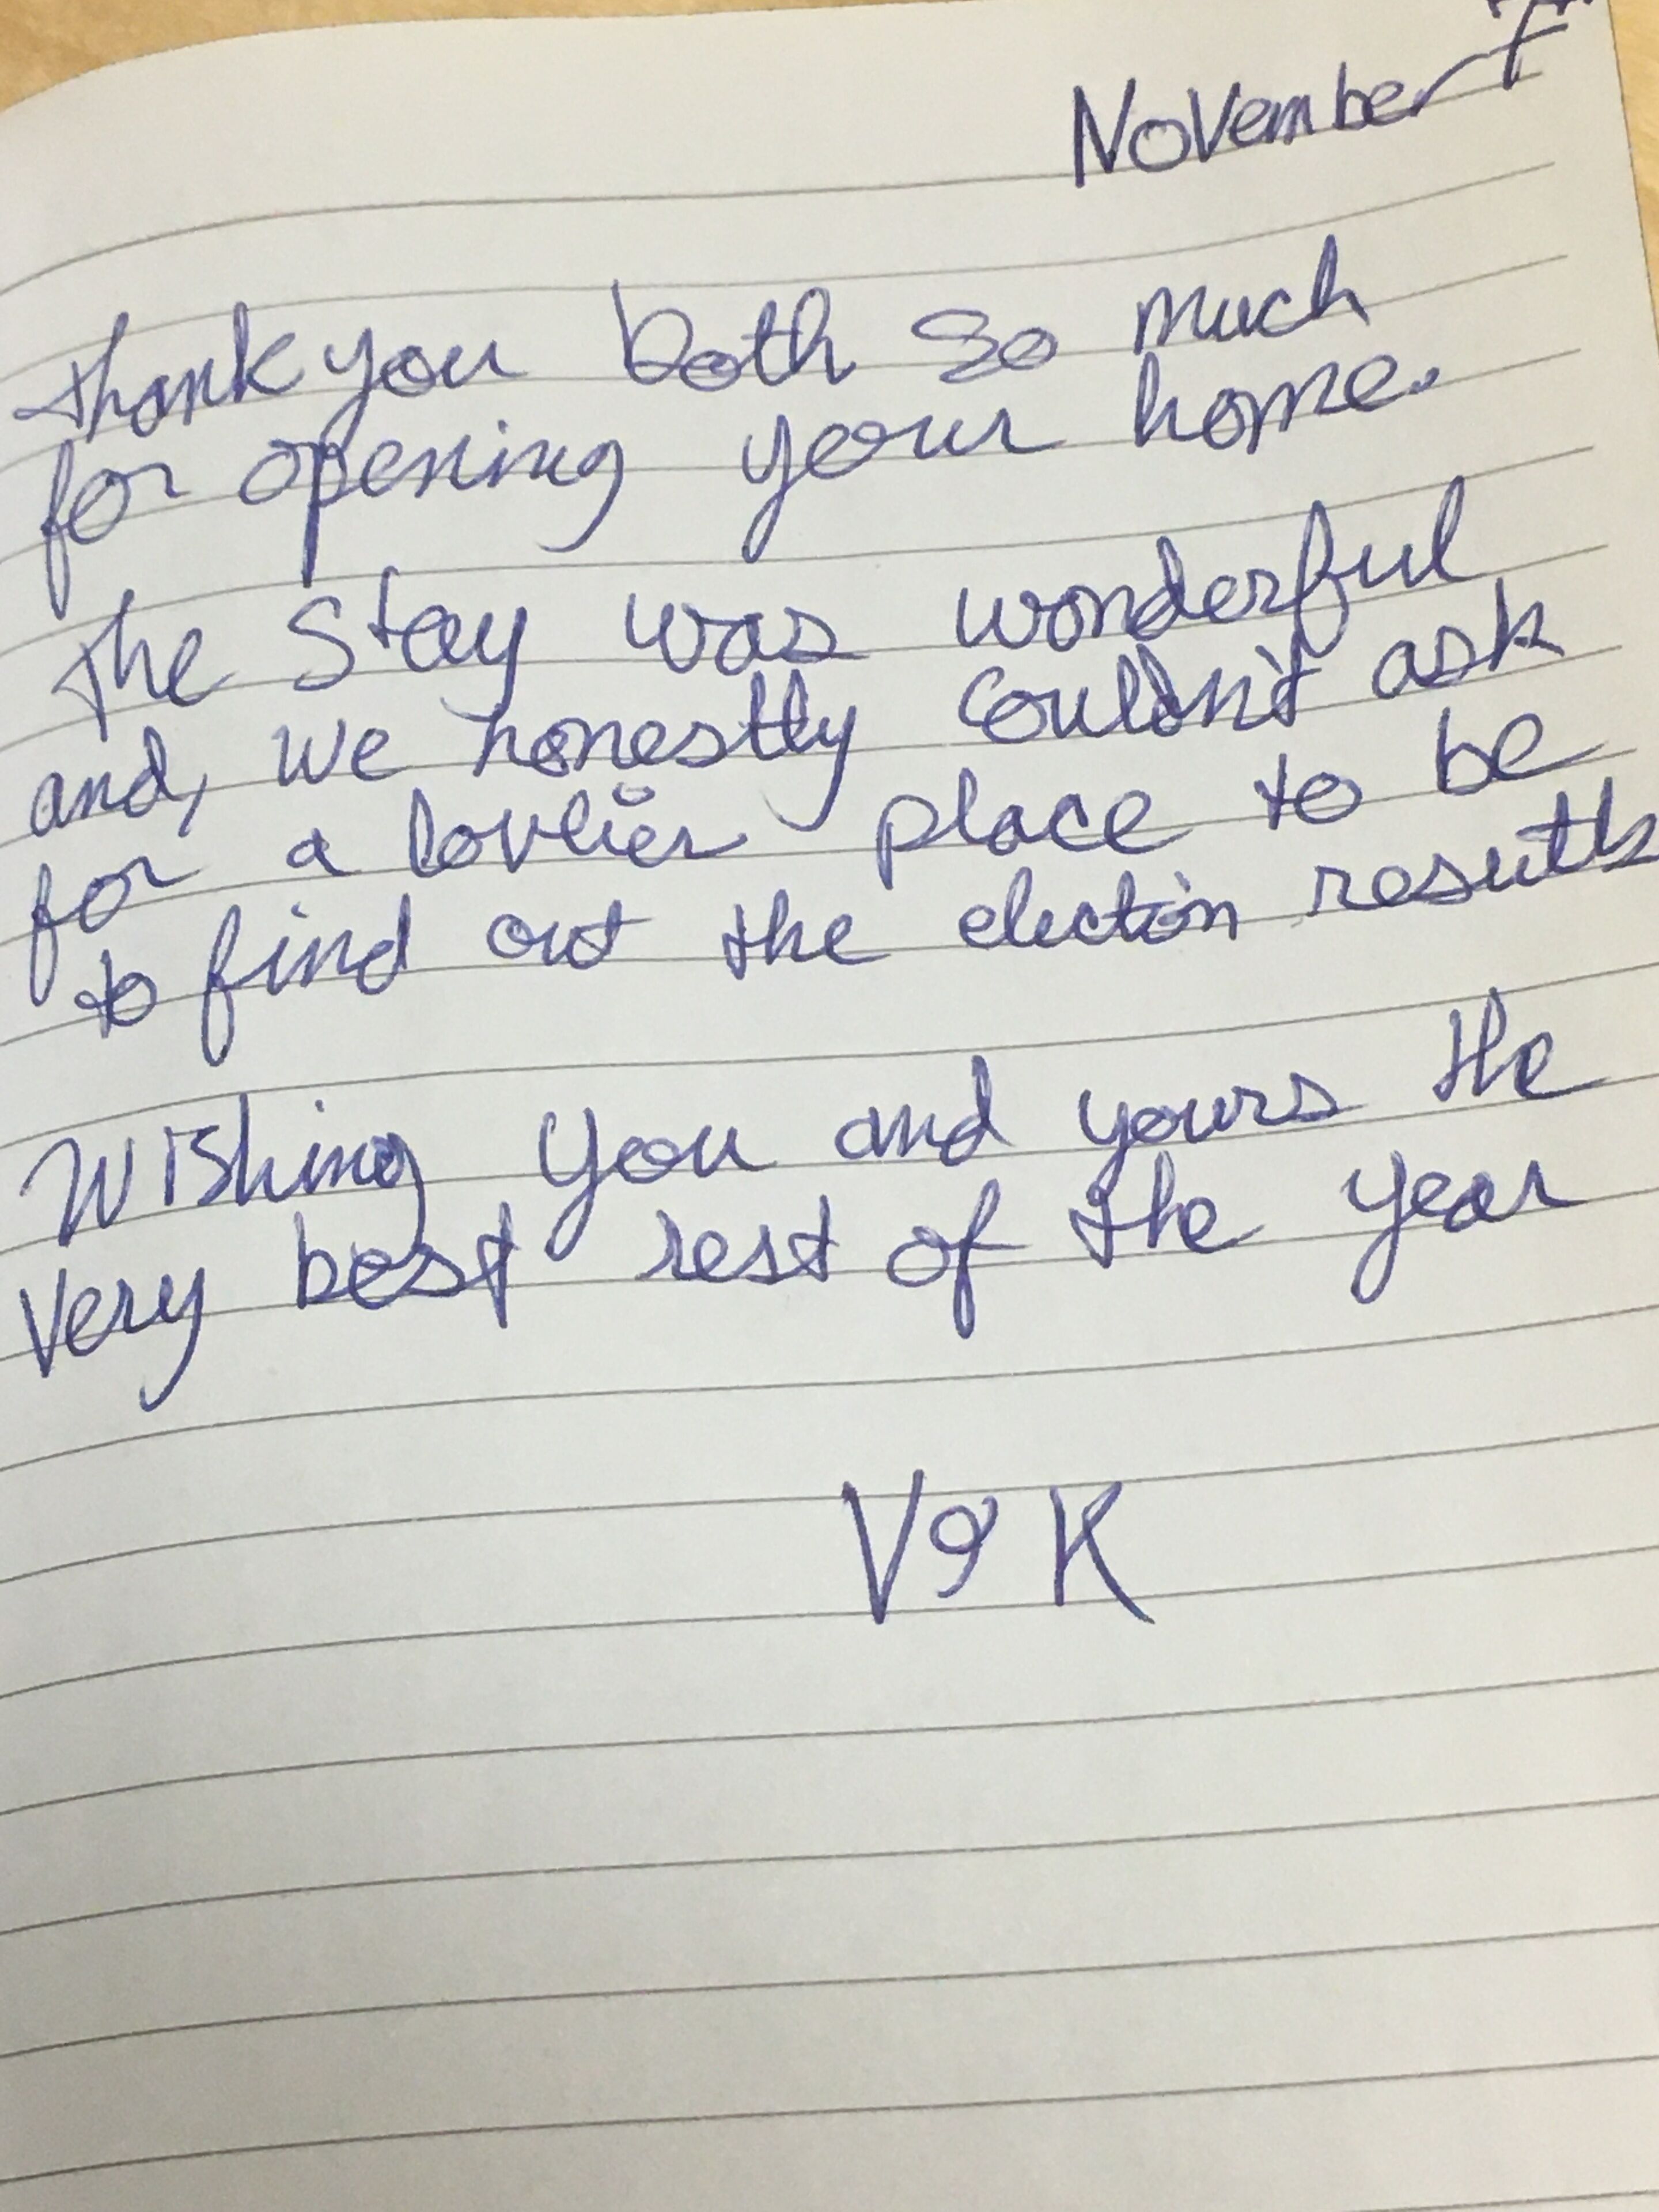 November 7th
Thank you both so much
for opening your home.
The stay was wonderful
and, we honestly couldn't ask
for a lovelier place to be
to find out the election results
Wishing you and yours the
very best rest of the year
V & K